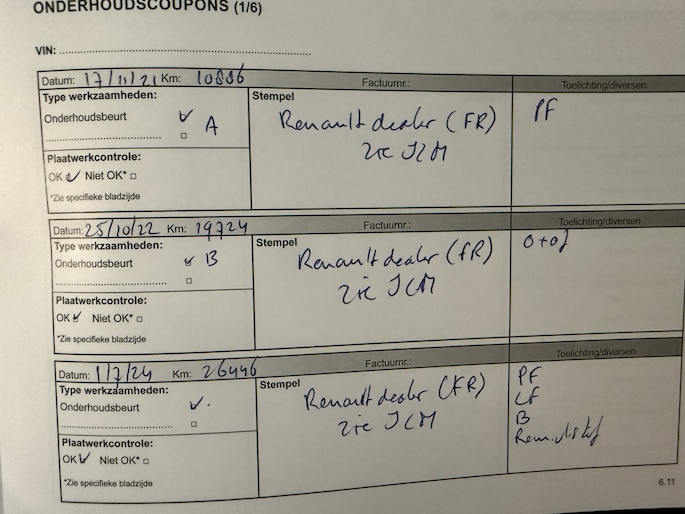 ONDERHOUDSCOUPONS (1/6)
VIN: ........................................................................
Datum: 17/11/21 Km: 10886 Factuurnr.: Toelichting/diversen
Type werkzaamheden: Stempel
Onderhoudsbeurt ✓ A Renault dealer (FR) PF
................................ □ zie ICM
Plaatwerkcontrole:
OK ✓ Niet OK* □
*Zie specifieke bladzijde
Datum: 25/10/22 Km: 19724 Factuurnr.: Toelichting/diversen
Type werkzaamheden: Stempel
Onderhoudsbeurt ✓ B Renault dealer (FR) O+of
□ zie ICM
Plaatwerkcontrole:
OK ✓ Niet OK* □
*Zie specifieke bladzijde
Datum: 1/7/24 Km: 26446 Factuurnr.: Toelichting/diversen
Type werkzaamheden: Stempel PF
Onderhoudsbeurt ✓ Renault dealer (FR) LF
................................ □ zie ICM B
Plaatwerkcontrole: Remvlstof
OK ✓ Niet OK* □
*Zie specifieke bladzijde
6.11